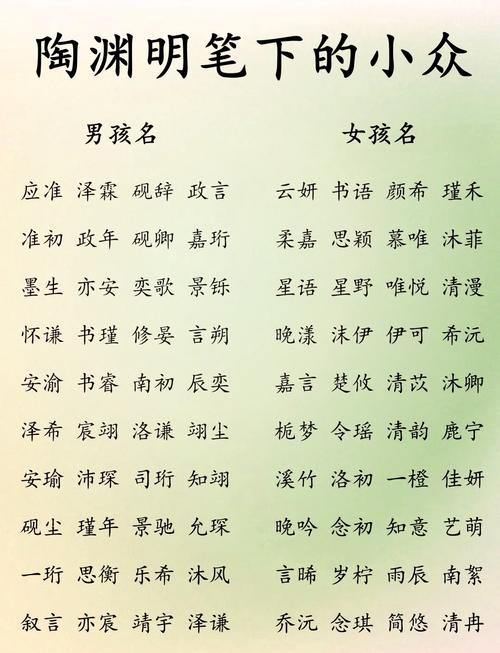 陶渊明笔下的小众
男孩名 女孩名
应准 泽霖 砚辞 政言 云妍 书语 颜希 瑾禾
准初 政年 砚卿 嘉珩 柔嘉 思颖 慕唯 沐菲
墨生 亦安 奕歌 景铄 星语 星野 唯悦 清漫
怀谦 书瑾 修晏 言朔 晚漾 沫伊 伊可 希沅
安渝 书睿 南初 辰奕 嘉言 楚攸 清苡 沐卿
泽希 宸翊 洛谦 翊尘 栀梦 令瑶 清韵 鹿宁
安瑜 沛琛 司珩 知翊 溪竹 洛初 一橙 佳妍
砚尘 瑾年 景驰 允琛 晚吟 念初 知意 艺萌
一珩 思衡 乐希 沐风 言晞 岁柠 雨辰 南絮
叙言 亦宸 靖宇 泽谦 乔沅 念琪 简悠 清冉